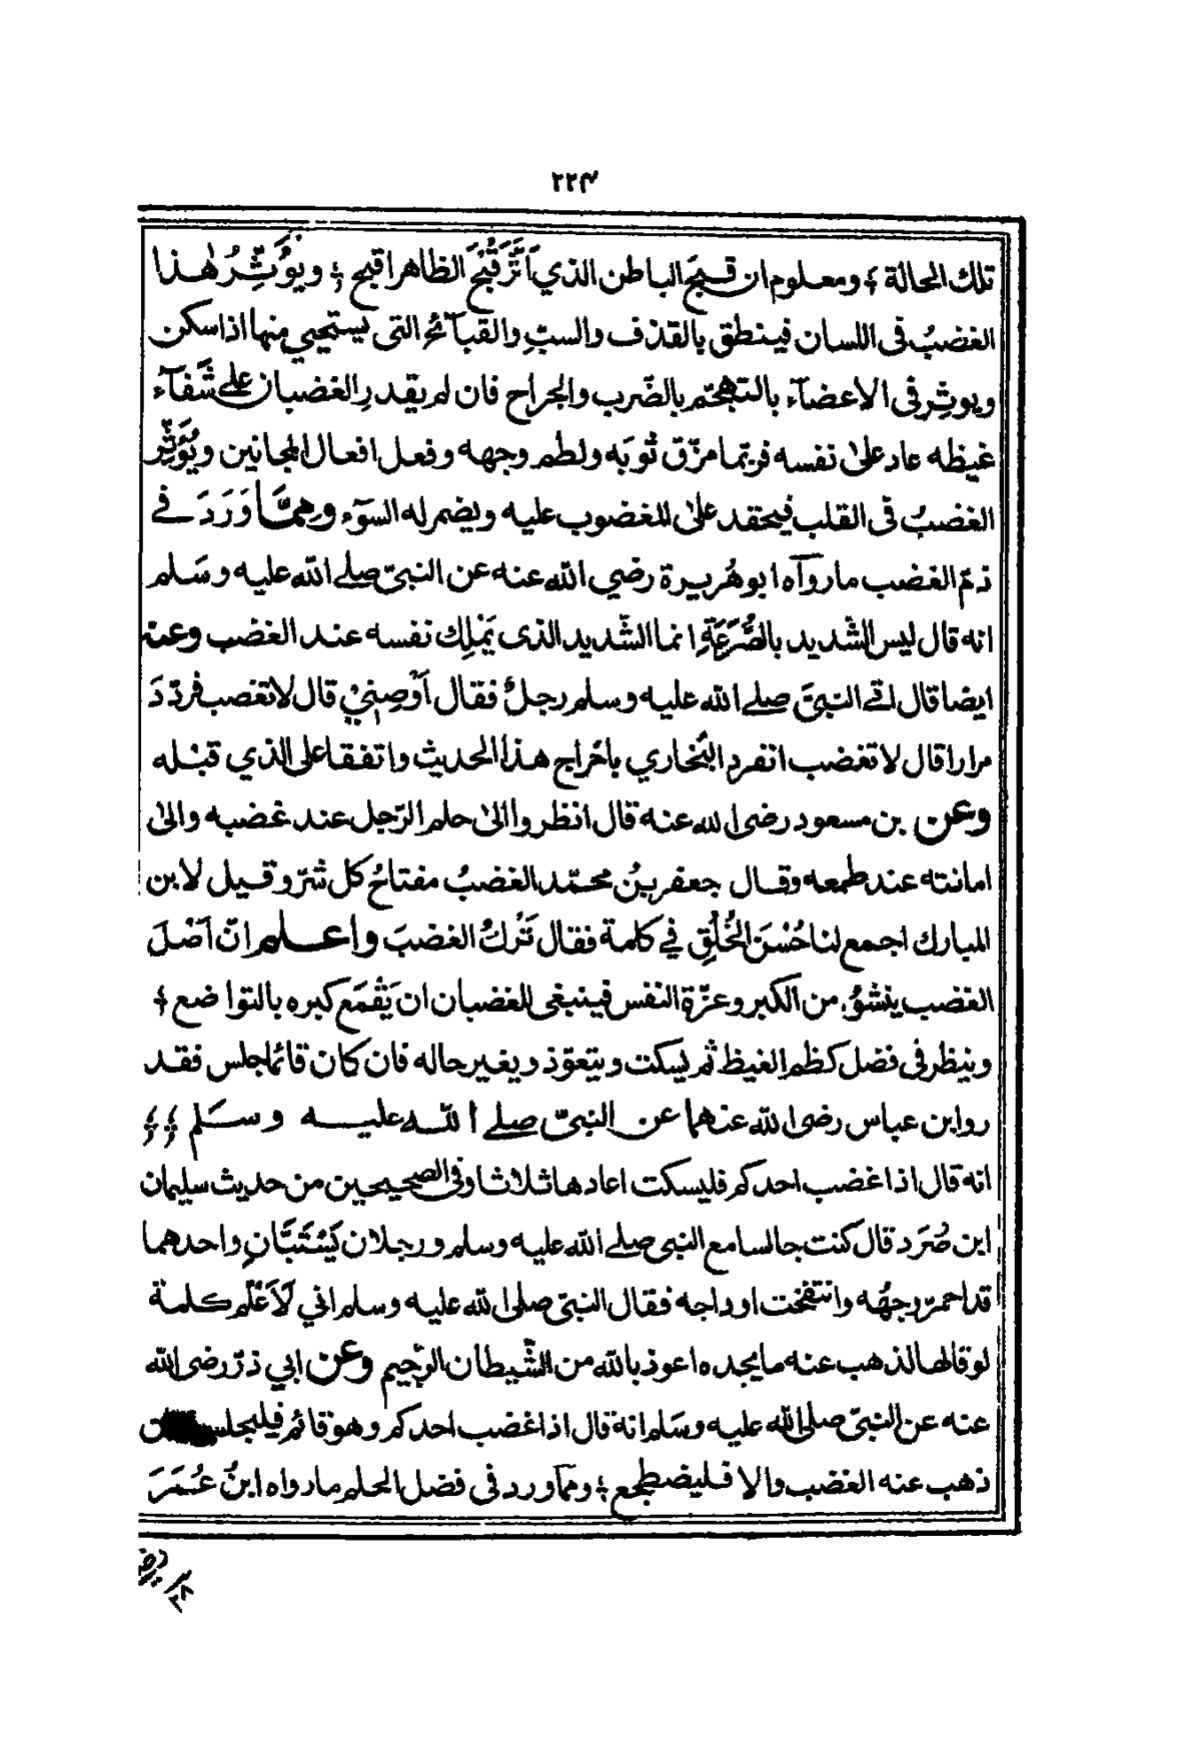 ٢٢٤
تلك الحالة ؛ ومعلوم ان قبح الباطن الذي اَثَّرَ قُبْحَ الظاهر اقبح ؛ ويؤَثِّرُ هٰذا
الغضبُ فى اللسان فينطق بالقذف والسبِّ والقبآئح التى يستحيي منها اذا سكن
ويوثِر فى الاعضآء بالتهجّم بالضّرب والجراح فان لم يقدرِ الغضبان على شَفَآء
غيظه عاد علىٰ نفسه فربّما مزّق ثوبَه ولطم وجهه وفعل افعال المجانين ويُؤثِّر
الغضبُ فى القلب فيحقد علىٰ المغضوب عليه ويضمر له السوٓء ومِمّا وَرَدَ فے
ذمّ الغضب ما روآه ابو هُريرة رضي الله عنه عن النبىّ صلے الله عليه وسَلم
انه قال ليس الشّديد بالصُّرَعَةِ انما الشّديد الذى يَمْلِك نفسه عند الغضب وعنه
ايضا قال اتے النبىَّ صلے الله عليه وسلم رجلٌ فقال اَوْصِنِيْ قال لا تغضب فردّدَ
مرارا قال لا تغضب انفرد البُخاري باخراج هذا الحديث واتفقا على الذي قبْله
وعن بن مسعود رضى الله عنه قال انظروا الىٰ حلم الرّجل عند غضبه والىٰ
امانته عند طمعه وقال جعفر بنُ محمّد الغضبُ مفتاحُ كل شرّ وقيل لابن
المبارك اجمع لنا حُسْنَ الخُلُقِ في كلمة فقال تَرْكُ الغضبَ واعلم انّ اَصْلَ
الغضب ينشؤُ من الكبر وعزّة النفس فينبغى للغضبان ان يَقْمَع كبره بالتواضع ؛
وينظر فى فضل كظم الغيظ ثم يسكت ويتعوّذ ويغير حاله فان كان قائما جلس فقد
روا بن عباس رضى الله عنهما عن النبىّ صلے الله عليه وسَلم ؛؛
انه قال اذا غضب احدكم فليسكت اعادها ثلاثا وفى الصحيحين من حديث سليمان
ابن صُرَد قال كنت جالسا مع النبى صلے الله عليه وسلم ورجلان يَسْتَبَّانِ واحدهما
قد احمرّ وجهُه وانتفخت اوداجه فقال النبىّ صلى الله عليه وسلم اني لَاَعْلَم كلمةً
لو قالها لذهب عنه ما يجده اعوذ بالله من الشّيطان الرّجيم وعن ابي ذرّ رضى الله
عنه عن النبىّ صلى الله عليه وسَلم انه قال اذا غضب احدكم وهو قائم فليجلس
ذهب عنه الغضب والا فليضطجع ؛ وممّا ورد فى فضل الحلم ما رواه ابنُ عُمَرَ